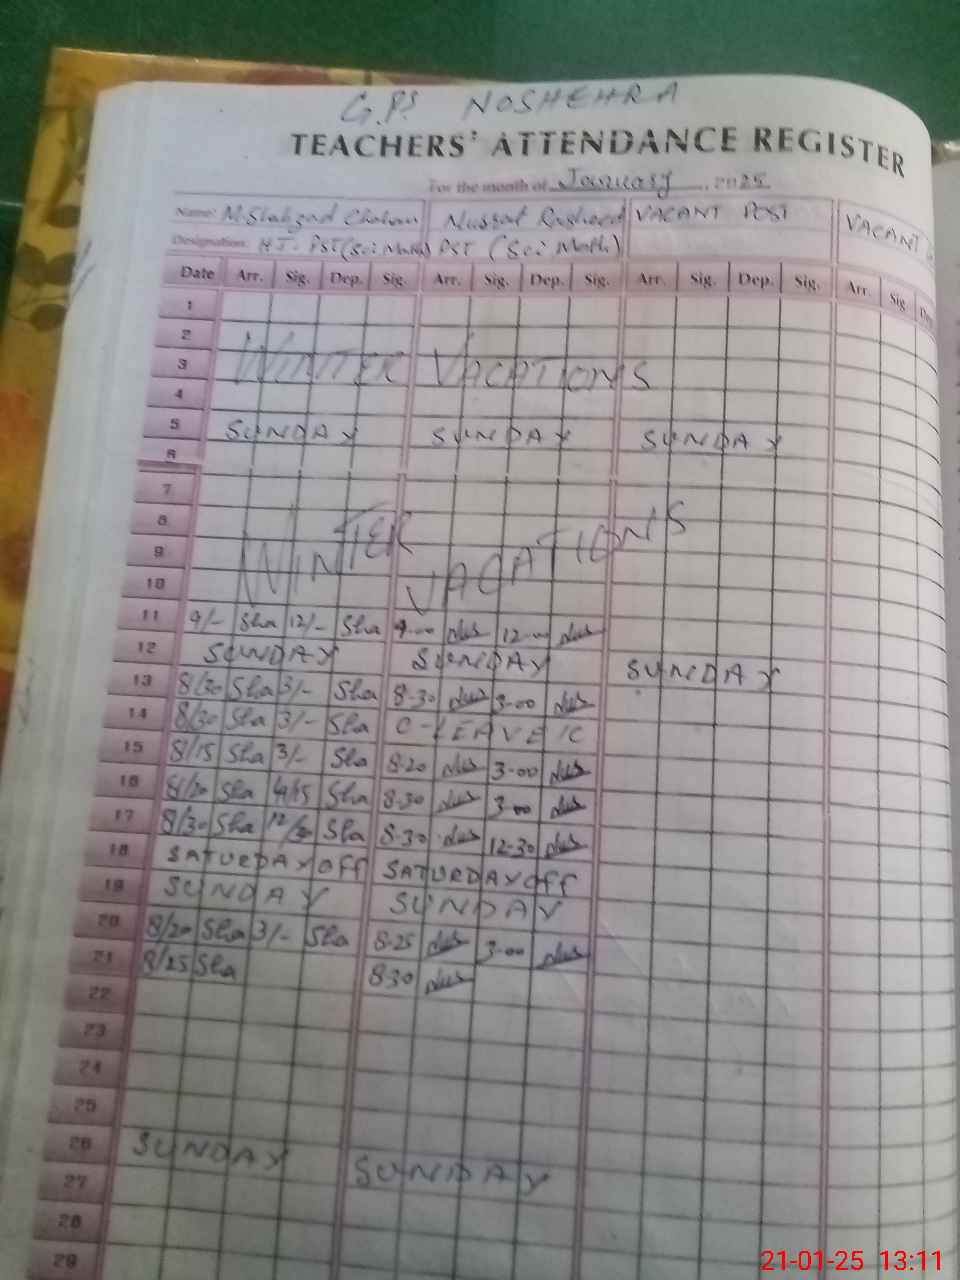 G.P.S NOSHEHRA
TEACHERS' ATTENDANCE REGISTER
For the month of January, 2025
Name: M.Shahzad Chohan Nussat Rasheed VACANT POST VACANT
Designation: H.T. PST(Sci Math) PST (Sci Math)
Date Arr. Sig. Dep. Sig. Arr. Sig. Dep. Sig. Arr. Sig. Dep. Sig. Arr. Sig.
1
2
WINTER VACATIONS
3
4
5 SUNDAY SUNDAY SUNDAY
6
7
8
WINTER VACATIONS
9
10
11 9/- Sha 12/- Sha 9-00 12-00
12 SUNDAY SUNDAY SUNDAY
13 8/30 Sha 3/- Sha 8-30 3-00
14 8/30 Sha 3/- Sha C-LEAVE
15 8/15 Sha 3/- Sha 8-20 3-00
16 8/20 Sha 4/15 Sha 8-30 3-00
17 8/30 Sha 12/30 Sha 8-30 12-30
18 SATURDAY OFF SATURDAY OFF
19 SUNDAY SUNDAY
20 8/20 Sha 3/- Sha 8-25 3-00
21 8/25 Sha 8-30
22
23
24
25
26 SUNDAY SUNDAY
27
28
29
21-01-25 13:11